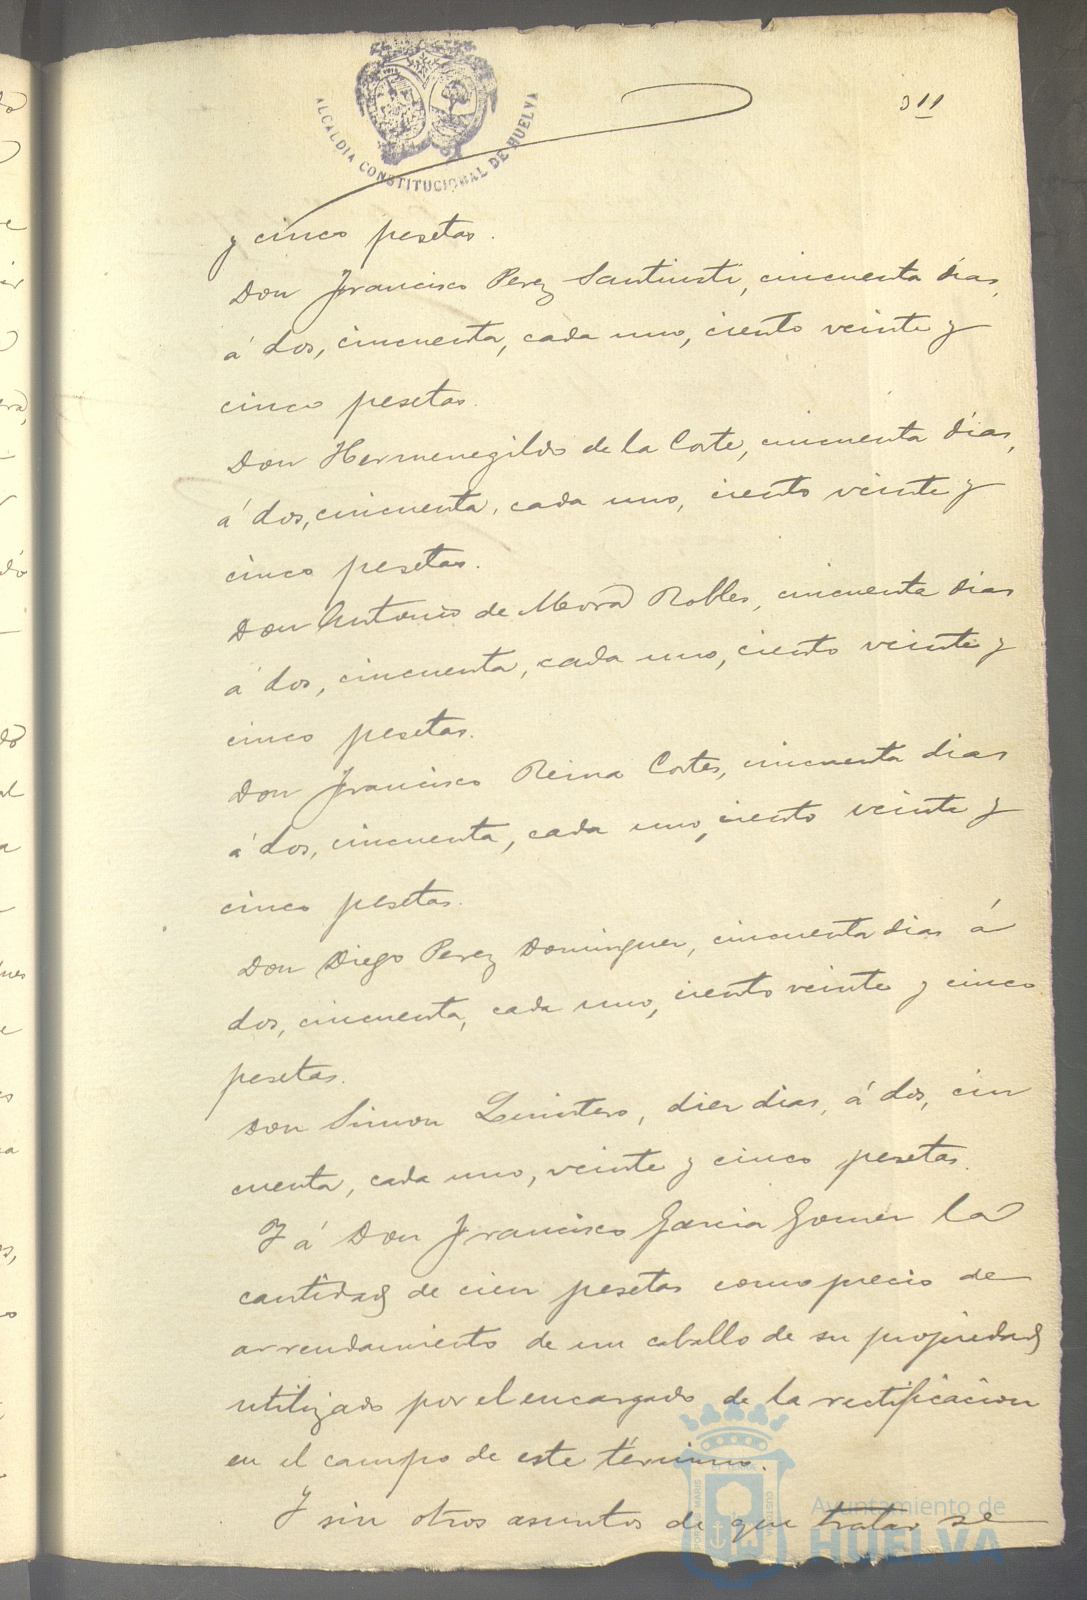 311
ALCALDIA CONSTITUCIONAL DE HUELVA
y cinco pesetas.
Don Francisco Perez Santiusti, cincuenta dias,
á dos, cincuenta, cada uno, ciento veinte y
cinco pesetas.
Don Hermenegildo de la Corte, cincuenta dias,
á dos, cincuenta, cada uno, ciento veinte y
cinco pesetas.
Don Antonio de Mora Robles, cincuenta dias
á dos, cincuenta, cada uno, ciento veinte y
cinco pesetas.
Don Francisco Reina Cortes, cincuenta dias
á dos, cincuenta, cada uno, ciento veinte y
cinco pesetas.
Don Diego Perez Dominguer, cincuenta dias á
dos, cincuenta, cada uno, ciento veinte y cinco
pesetas.
Don Simon Quintero, dier dias, á dos, cin
cuenta, cada uno, veinte y cinco pesetas.
Y á Don Francisco Garcia Gomer la
cantidad de cien pesetas como precio de
arrendamiento de un caballo de su propiedad
utilizado por el encargado de la rectificacion
en el campo de este término.
Y sin otros asuntos de que tratar se
Ayuntamiento de
HUELVA